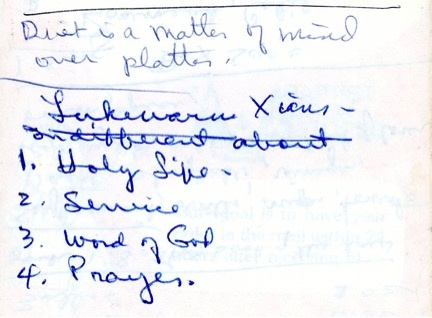 Diet is a matter of mind
over platter.
Lukewarm Xians -
indifferent about
1. Holy Life -
2. Service
3. Word of God
4. Prayer.